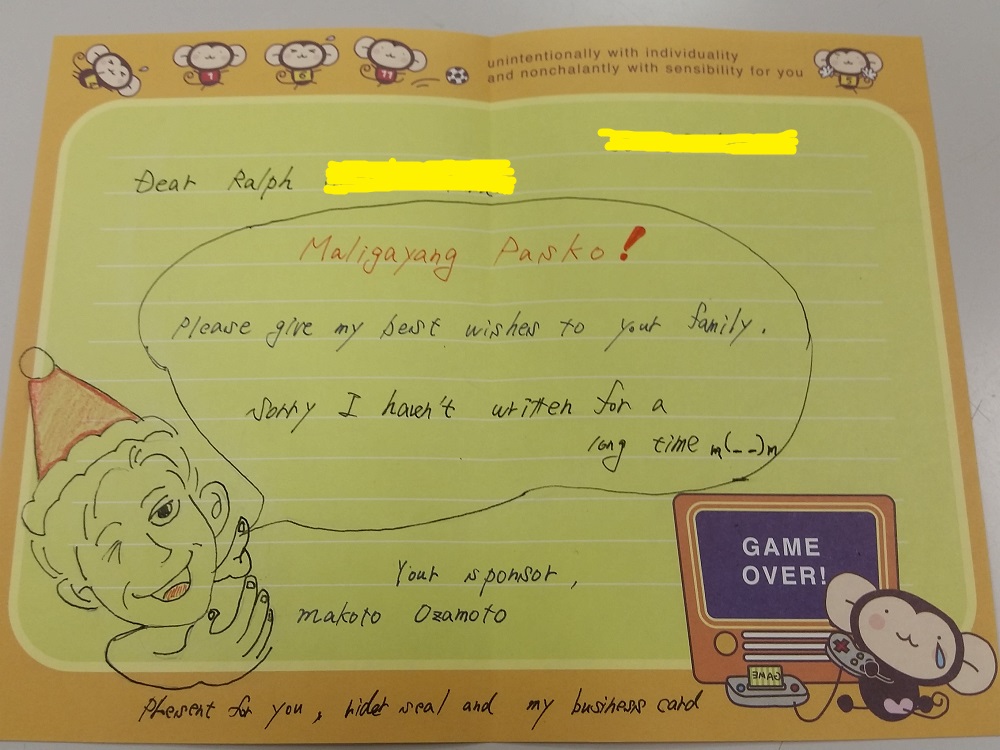 unintentionally with individuality
and nonchalantly with sensibility for you
1
6
11
5
Dear Ralph
Maligayang Pasko!
Please give my best wishes to your family.
Sorry I haven't written for a
long time m(--)m
Your sponsor,
Makoto Ozamoto
GAME
OVER!
GAME
Present for you, seal and my business card